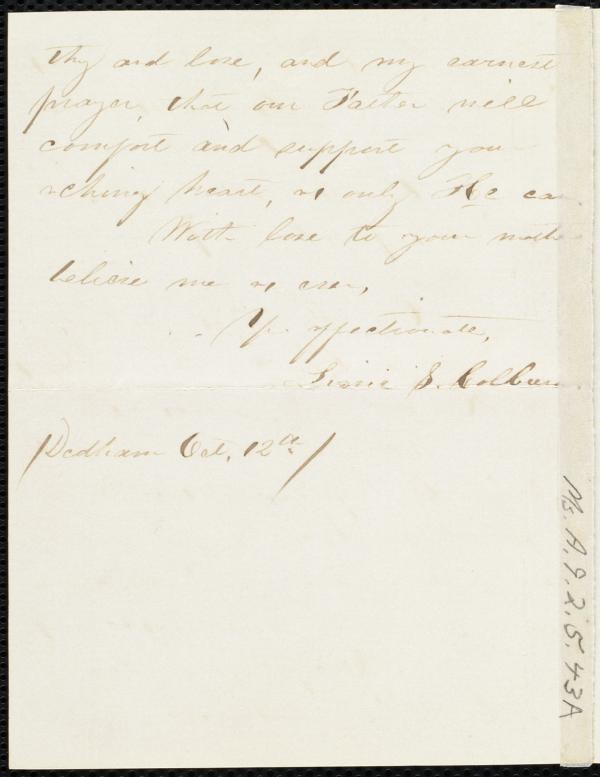 thy and love, and my earnest
prayer, that our Father will
comfort and support you
aching heart, as only He ca
With love to your moth
believe me as ever,
Yr. affectionate,
S. Colburn
/Dedham Oct. 12th/
Ms. A. 9. 2. 5. 43A